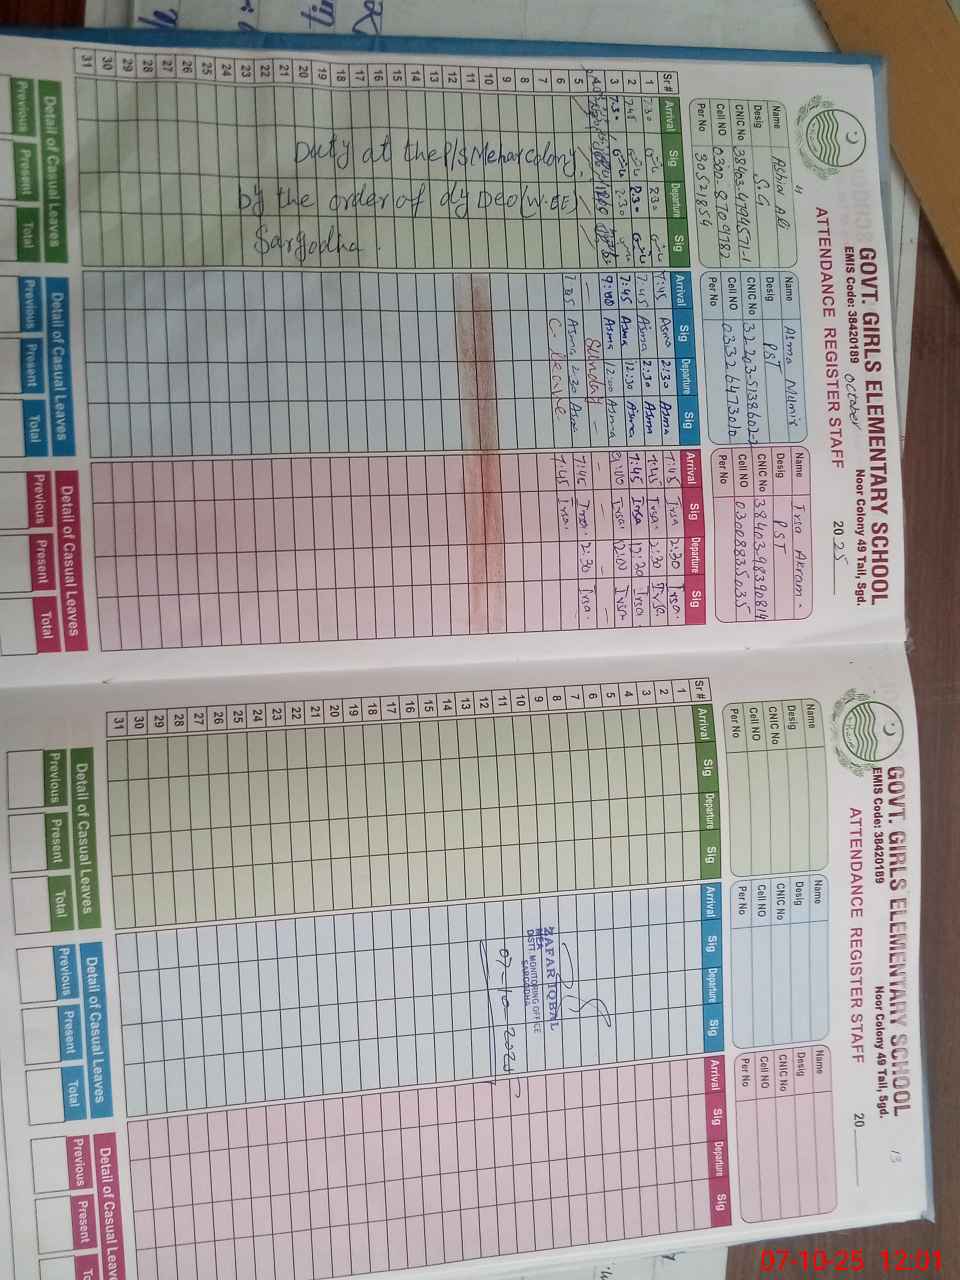 GOVT. GIRLS ELEMENTARY SCHOOL
EMIS Code: 38420189 October Noor Colony 49 Tail, Sgd.
ATTENDANCE REGISTER STAFF 2025
Name
Desig S.G
CNIC No
Cell NO 0300-8709782
Per No 30521854
Name Asma
Desig PST
CNIC No
Cell NO
Per No
Name Irsa Akram.
Desig PST
CNIC No
Cell NO 03008835035
Per No
Sr # Arrival Sig Departure Sig Arrival Sig Departure Sig Arrival Sig Departure Sig
1 7:30 2:30 7:45 Asma 2:30 Asma 7:45 Irsa 2:30 Irsa.
2 7:45 2:30 7:45 Asma 2:30 Asma 7:45 Irsa. 2:30 Irsa.
3 7:30 7:45 Asma 12:30 Asma 7:45 Irsa 12:30 Irsa
4 9:00 Asma 12:00 Asma 9:00 Irsa. 12:00 Irsa
5 — Sunday — — — — —
6 Asma 2:30 Asma 7:45 Irsa. 2:30 Irsa.
7 C- leave 7:45 Irsa.
8
9
10
11
12
13
14
15
16
17
18
19
20
21
22
23
24
25
26
27
28
29
30
31
Duty at the P/S Mehar Colony
by the order of dy DEO (W-EE)
Sargodha.
Detail of Casual Leaves Detail of Casual Leaves Detail of Casual Leaves
Previous Present Total Previous Present Total Previous Present Total
13
GOVT. GIRLS ELEMENTARY SCHOOL
EMIS Code: 38420189 Noor Colony 49 Tail, Sgd.
ATTENDANCE REGISTER STAFF 20
Name
Desig
CNIC No
Cell NO
Per No
Name
Desig
CNIC No
Cell NO
Per No
Name
Desig
CNIC No
Cell NO
Per No
Sr # Arrival Sig Departure Sig Arrival Sig Departure Sig Arrival Sig Departure Sig
1
2
3
4
5
6
7
8
9
10
11
12
13
14
15
16
17
18
19
20
21
22
23
24
25
26
27
28
29
30
31
ZAFAR IQBAL
MEA
DISTT. MONITORING OFFICE
SARGODHA
07-10-2025
Detail of Casual Leaves Detail of Casual Leaves Detail of Casual Leave
Previous Present Total Previous Present Total Previous Present
07-10-25 12:01